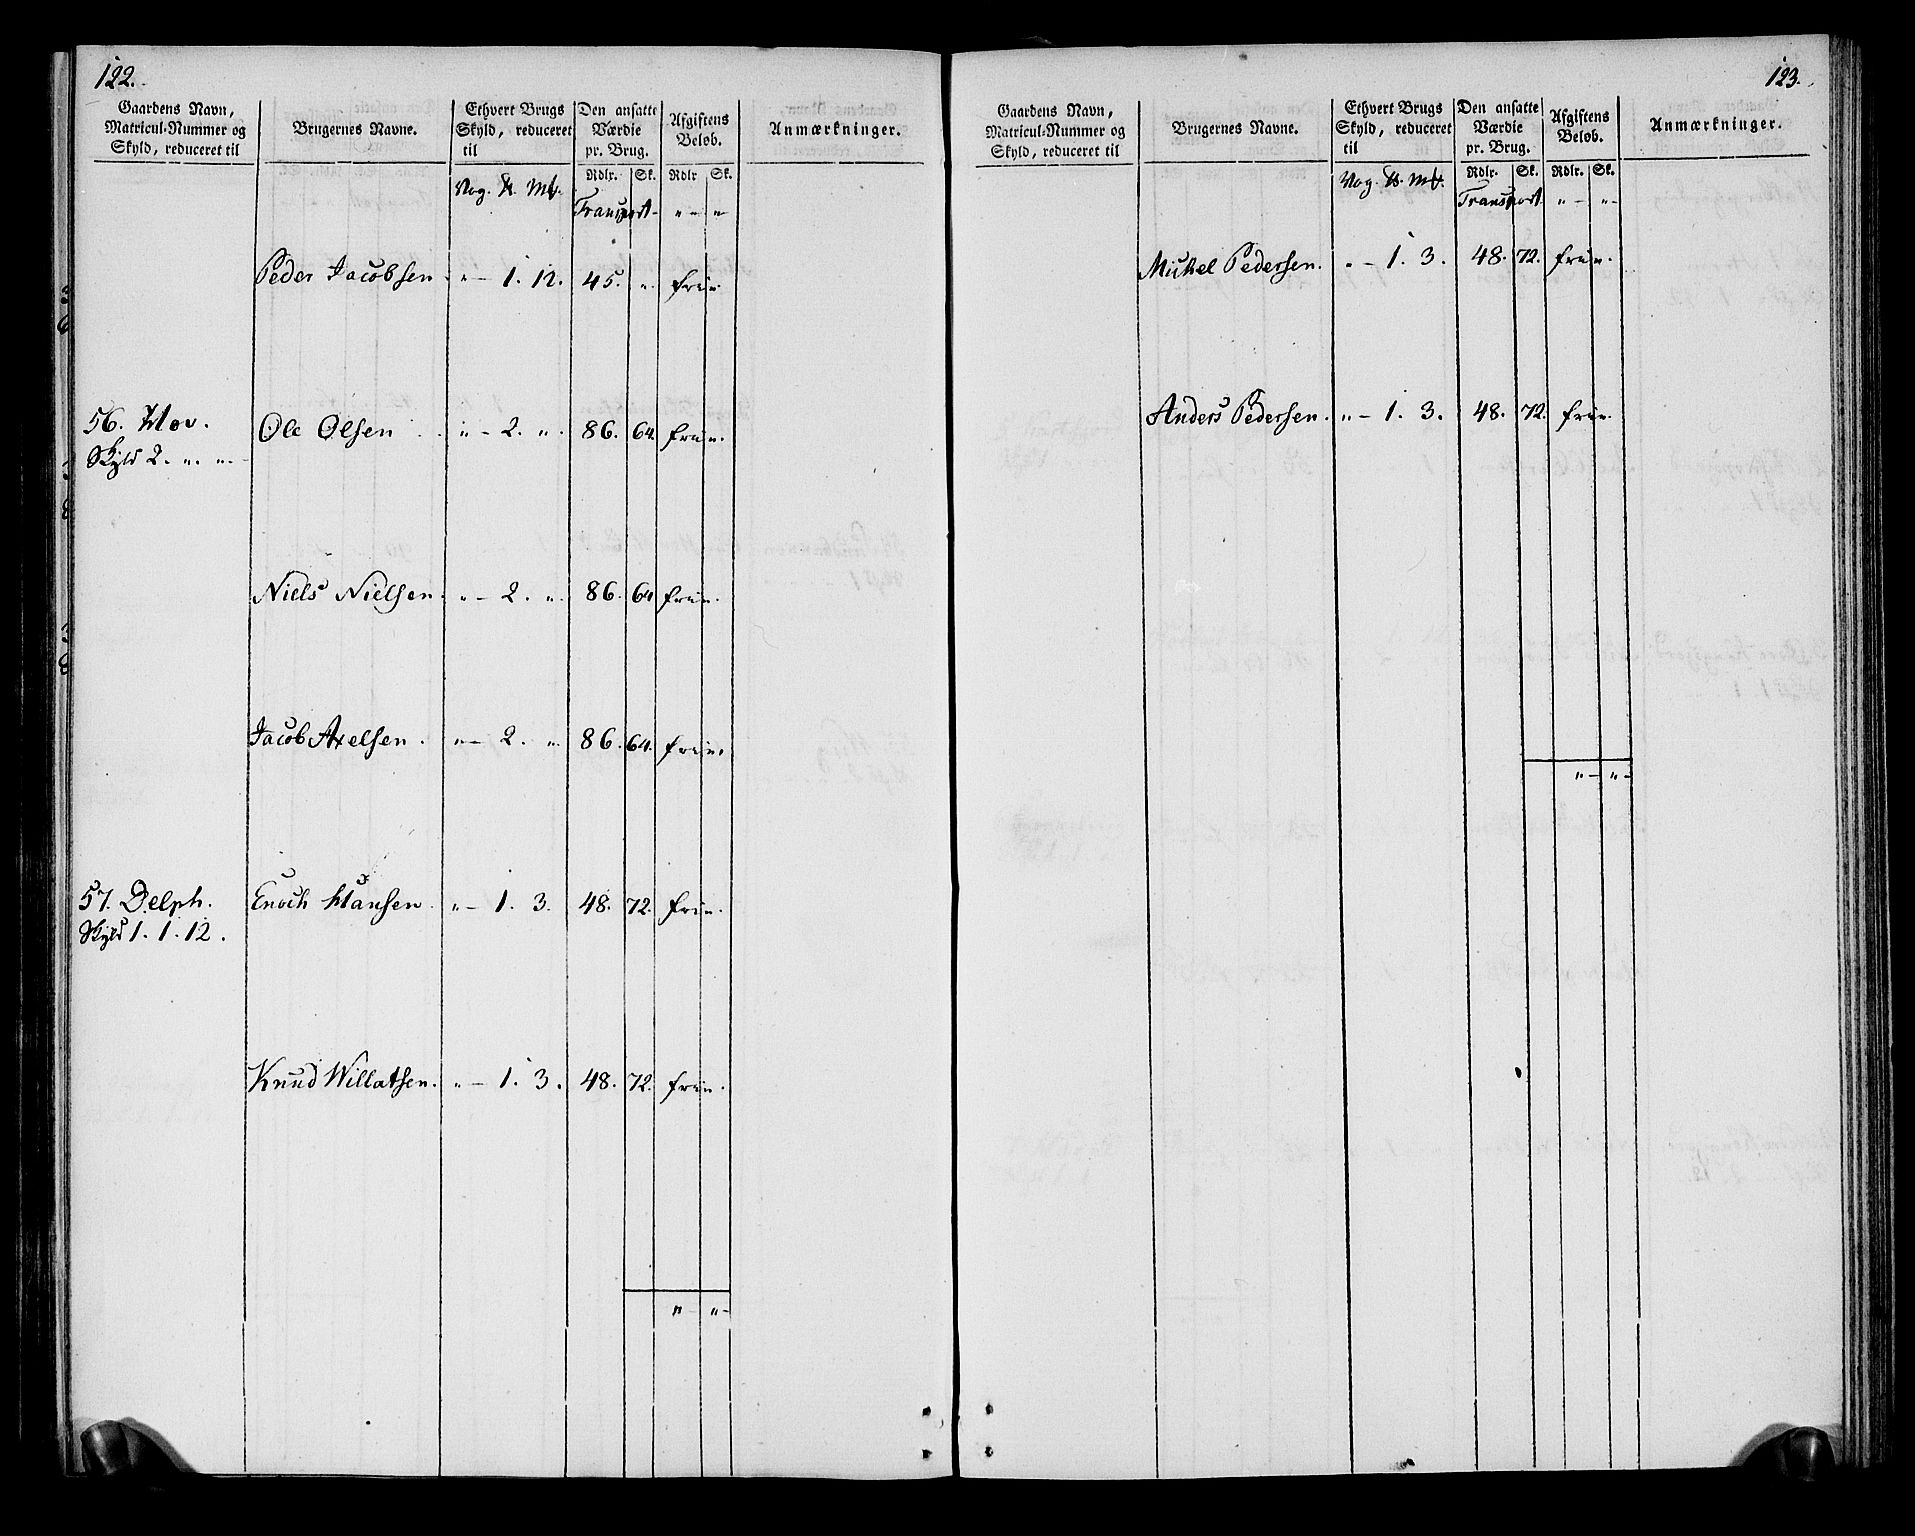 122.
Gaardens Navn, Matricul-Nummer og Skyld, reduceret til
Brugernes Navne.
Ethvert Brugs Skyld, reduceret til
Den ansatte Værdie pr. Brug.
Afgiftens Beløb.
Anmærkninger.
Vog. ℔. Mk.
Rdlr. Sk. Rdlr Sk.
Transport - " - " -
Peder Jacobsen. " - 1. 12. 45. ". frie.
56. Mov. Ole Olsen " - 2. ". 86. 64. frie.
Skyld 2. ". ". -
Niels Nielsen. " - 2. ". 86. 64. frie.
Jacob Axelsen. " - 2. ". 86. 64. frie.
57. Delph. Enoch Hansen. " - 1. 3. 48. 72. frie.
Skyld 1. 1. 12.
Knud Willatsen. " - 1. 3. 48. 72. frie.
" - " -
123.
Gaardens Navn, Matricul-Nummer og Skyld, reduceret til
Brugernes Navne.
Ethvert Brugs Skyld, reduceret til
Den ansatte Værdie pr. Brug.
Afgiftens Beløb.
Anmærkninger.
Vog. ℔. Mk.
Rdlr. Sk. Rdlr. Sk.
Transport " - " -
Mickel Pedersen. " - 1. 3. 48. 72. frie.
Anders Pedersen. " - 1. 3. 48. 72. frie.
" - " -